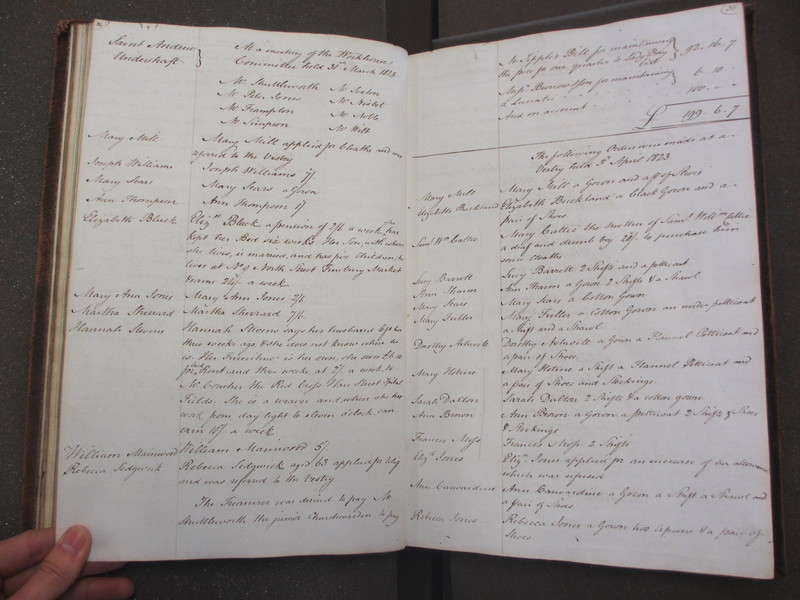 Saint Andrew
Undershaft
At a meeting of the Workhouse
Committee held 31st March 1823
Mr Shuttleworth Mr Seaton
Mr Peter Jones
Mr Frampton Mr Noble
Mr Simpson Mr Wilt
Mary Mill
Mary Mill applied for Cloaths and was
referred to the Vestry
Joseph Williams
Joseph Williams 7/
Mary Sears
Mary Sears a Gown
Ann Thompson
Ann Thompson 1/
Elizabeth Bluck
Elizth Bluck a pension of 2/6 a week, has
kept her Bed six weeks. Her Son, with whom
she lives, is married, and has five Children, he
lives at No 9 North Street Finsbury Market
earns 24/- a week.
Mary Ann Jones
Mary Ann Jones 2/6
Martha Sherrard
Martha Sherrard 7/6
Hannah Stevens
Hannah Stevens says her husband left her
three weeks ago & she does not know where he
is. Her Furniture is her own, she owes
for Rent and three weeks, at 2/ a week to
Mr Coucher the Red Cross Street
Fields. She is a weaver and when she has
work from day light to eleven o'clock, can
earn 10/ a week.
William Manwood
William Manwood 5/.
Rebecca Sedgwick
Rebecca Sedgwick aged 63 applied for
and was referred to the Vestry
The Treasurer was desired to pay Mr
Shuttleworth the junior Churchwarden to pay
38
Mr Tipple's Bill for maintaining
the poor for one quarter to Lady Day
last
92. 16. 7
Messrs Burrows & Son for maintaining
a Lunatic
6. 10. -
And on account
100. - -
£ 199. 6. 7
The following Orders were made at a
Vestry held 3d April 1823
Mary Mill
Mary Mill a Gown and a pr of Shoes
Elizabeth Buckland
Elizabeth Buckland a black Gown and a
pair of Shoes
Saml Wm Cattie
Mary Cattie the mother of Saml Willm Cattie
a deaf and dumb boy 20/- to purchase him
some cloaths
Lucy Barrett
Lucy Barrett 2 Shifts and a petticoat
Ann Tharon
Ann Tharon a Gown 2 Shifts & a Shawl
Mary Sears
Mary Sears a Cotton Gown
Mary Fuller
Mary Fuller a Cotton Gown an under petticoat
a Shift and a Shawl
Dorothy
Dorothy a Gown a Flannel Petticoat and
a pair of Shoes.
Mary Helene
Mary Helene a Shift a Flannel Petticoat and
a pair of Shoes and Stockings.
Sarah Dalton
Sarah Dalton 2 Shifts & a cotton gown.
Ann Brown
Ann Brown a Gown a petticoat 2 Shifts & Shoes
& Stockings.
Frances Moss
Frances Moss 2 Shifts
Elizth Jones
Elizth Jones applied for an increase of her allowance
which was refused
Ann Carwardine
Ann Carwardine a Gown a Shift a Shawl and
a pair of Shoes
Rebecca Jones
Rebecca Jones a Gown two Aprons & a pair of
Shoes.